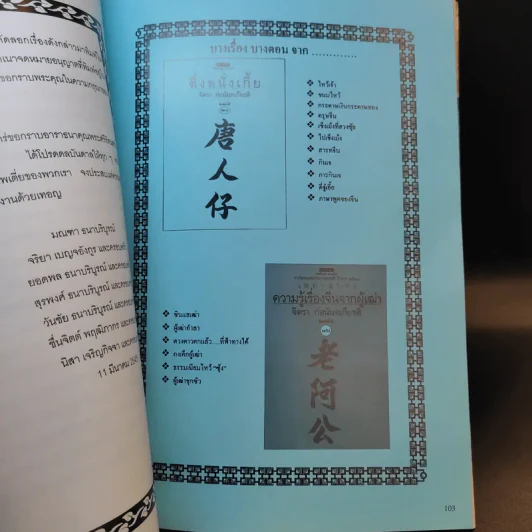 บางเรื่อง บางตอน จาก .............
ตึ่งหนั่งเกี้ย
จิตรา ก่อนันทเกียรติ
唐人仔
ไหว้เจ้า
ขนมไหว้
กระดาษเงินกระดาษทอง
ตรุษจีน
เช็งเม้งที่ฮวงซุ้ย
ไปเช็งเม้ง
สารทจีน
กินเจ
การกินเจ
ตี่จู้เอี๊ย
ภาษาพูดของจีน
ความรู้เรื่องจีนจากผู้เฒ่า
จิตรา ก่อนันทเกียรติ
老阿公
ซินแสเฒ่า
ผู้เฒ่าอำลา
ดวงดาวตกแล้ว....ที่ฟ้าทางใต้
กงเต๊กผู้เฒ่า
ธรรมเนียมไหว้ "ซุ้ง"
ผู้เฒ่าชุกชัว
103
คัดลอกเรื่องดังกล่าวมาพิมพ์
ขอกราบพระคุณในความกรุณา
ร่ขอกราบอาราธนาคุณพระศรีรัตน
ได้โปรดดลบันดาลให้ทุก ๆ
พเตี่ยของพวกเรา จงประสบแต่
งานด้วยเทอญ
มณฑา ธนาบริบูรณ์
จริยา เบญจอังกูร และครอบครัว
ยอดพล ธนาบริบูรณ์ และ
สุรพงศ์ ธนาบริบูรณ์ และครอบ
วันชัย ธนาบริบูรณ์ และครอบ
ชื่นจิตต์ พฤฒิภากร และครอบ
นิสา เจริญกิจจา และครอบ
11 มีนาคม 254